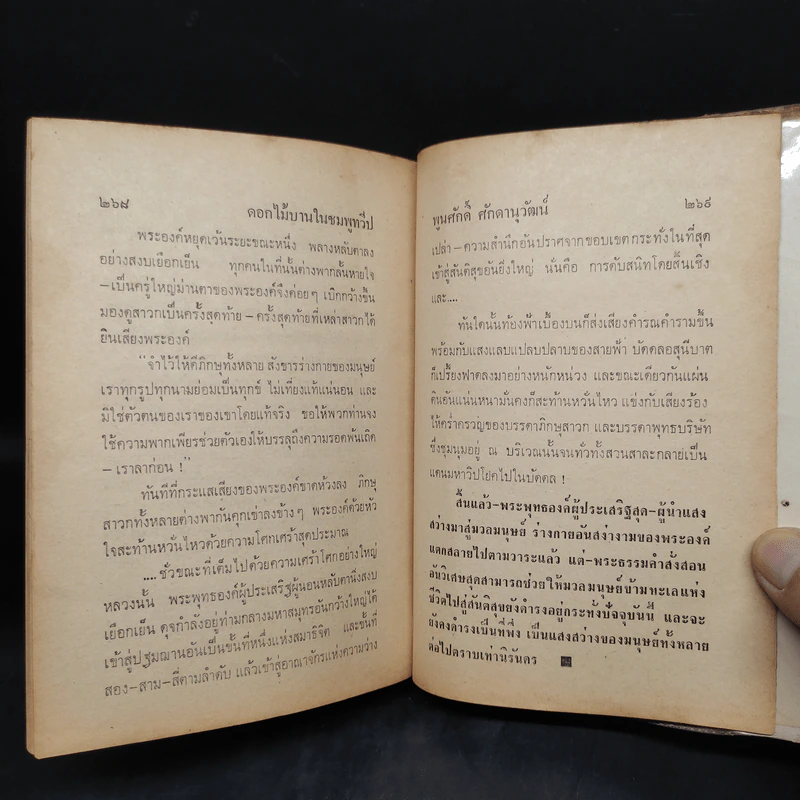 ๒๖๘ ดอกไม้บานในชมพูทวีป
พระองค์หยุดเว้นระยะขณะหนึ่ง พลางหลับตาลง
อย่างสงบเยือกเย็น ทุกคนในที่นั้นต่างพากลั้นหายใจ
–เป็นครู่ใหญ่ม่านตาของพระองค์จึงค่อยๆ เบิกกว้างขึ้น
มองดูสาวกเป็นครั้งสุดท้าย–ครั้งสุดท้ายที่เหล่าสาวกได้
ยินเสียงพระองค์
“จำไว้ให้ดีภิกษุทั้งหลาย สังขารร่างกายของมนุษย์
เราทุกรูปทุกนามย่อมเป็นทุกข์ ไม่เที่ยงแท้แน่นอน และ
มิใช่ตัวตนของเราของเขาโดยแท้จริง ขอให้พวกท่านจง
ใช้ความพากเพียรช่วยตัวเองให้บรรลุถึงความรอดพ้นเถิด
– เราลาก่อน !”
ทันทีที่กระแสเสียงของพระองค์ขาดห้วงลง ภิกษุ
สาวกทั้งหลายต่างพากันคุกเข่าลงข้างๆ พระองค์ด้วยหัว
ใจสะท้านหวั่นไหวด้วยความโศกเศร้าสุดประมาณ
....ชั่วขณะที่เต็มไปด้วยความเศร้าโศกอย่างใหญ่
หลวงนั้น พระพุทธองค์ผู้ประเสริฐผู้นอนหลับตานิ่งสงบ
เยือกเย็น ดุจกำลังอยู่ท่ามกลางมหาสมุทรอันกว้างใหญ่ได้
เข้าสู่ปฐมฌานอันเป็นขั้นที่หนึ่งแห่งสมาธิจิต และขั้นที่
สอง–สาม–สี่ตามลำดับ แล้วเข้าสู่อาณาจักรแห่งความว่าง
พูนศักดิ์ ศักดานุวัฒน์ ๒๖๙
เปล่า–ความสำนึกอันปราศจากขอบเขต กระทั่งในที่สุด
เข้าสู่สันติสุขอันยิ่งใหญ่ นั่นคือ การดับสนิทโดยสิ้นเชิง
และ....
ทันใดนั้นท้องฟ้าเบื้องบนก็ส่งเสียงคำรณคำรามขึ้น
พร้อมกับแสงแลบแปลบปลาบของสายฟ้า บัดดลอสุนีบาต
ก็เปรี้ยงฟาดลงมาอย่างหนักหน่วง และขณะเดียวกันแผ่น
ดินอันแน่นหนามั่นคงก็สะท้านหวั่นไหว แข่งกับเสียงร้อง
ไห้คร่ำครวญของบรรดาภิกษุสาวก และบรรดาพุทธบริษัท
ซึ่งชุมนุมอยู่ ณ บริเวณนั้นจนทั่วทั้งสวนสาละกลายเป็น
แดนมหาวิปโยคไปในบัดดล !
สิ้นแล้ว–พระพุทธองค์ผู้ประเสริฐสุด–ผู้นำแสง
สว่างมาสู่มวลมนุษย์ ร่างกายอันสง่างามของพระองค์
แตกสลายไปตามวาระแล้ว แต่–พระธรรมคำสั่งสอน
อันวิเศษสุดสามารถช่วยให้มวลมนุษย์ข้ามทะเลแห่ง
ชีวิตไปสู่สันติสุขยังดำรงอยู่กระทั่งปัจจุบันนี้ และจะ
ยังคงดำรงเป็นที่พึ่ง เป็นแสงสว่างของมนุษย์ทั้งหลาย
ต่อไปตราบเท่านิรันดร